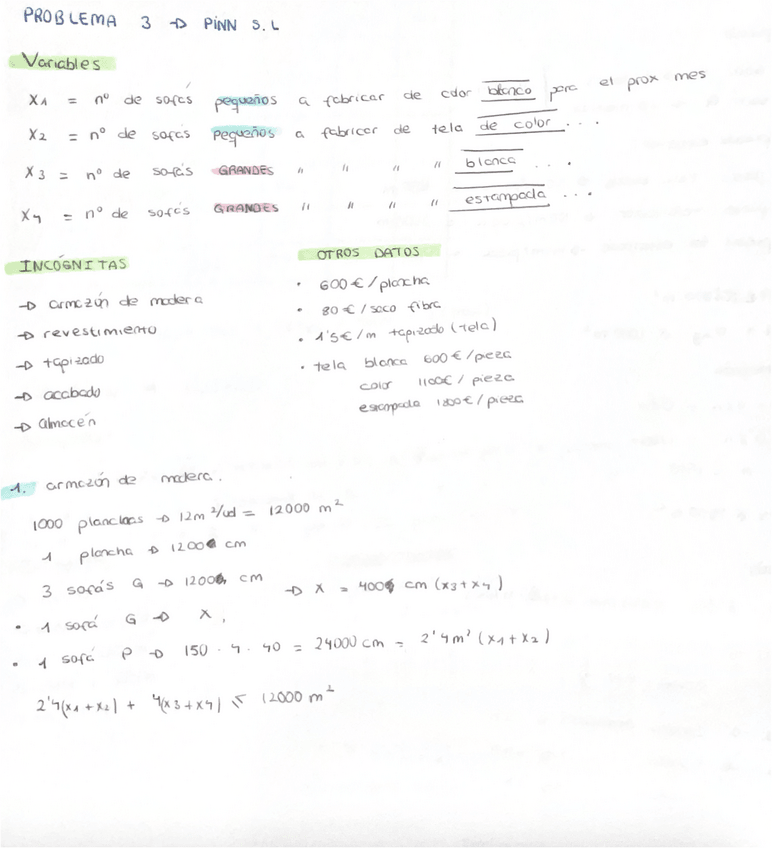 PROBLEMA 3 → PINN S.L
Variables
X1 = nº de sofás pequeños a fabricar de color blanco para el prox mes
X2 = nº de sofás pequeños a fabricar de tela de color ...
X3 = nº de sofás GRANDES " " " " blanca ...
X4 = nº de sofás GRANDES " " " " estampada ...
INCÓGNITAS
→ armazón de madera
→ revestimiento
→ tapizado
→ acabado
→ almacén
OTROS DATOS
· 600€/plancha
· 80€/saco fibra
· 1'5€/m tapizado (tela)
· tela blanca 600€/pieza
color 1100€/pieza
estampada 1800€/pieza
1. armazón de madera.
1000 planchas → 12m²/ud = 12000 m²
1 plancha → 1200 cm
3 sofás G → 1200 cm → X = 400 cm (x3+x4)
· 1 sofá G → X,
· 1 sofá P → 150 · 4 · 40 = 24000 cm = 2'4 m² (x1+x2)
2'4(x1+x2) + 4(x3+x4) ≤ 12000 m²